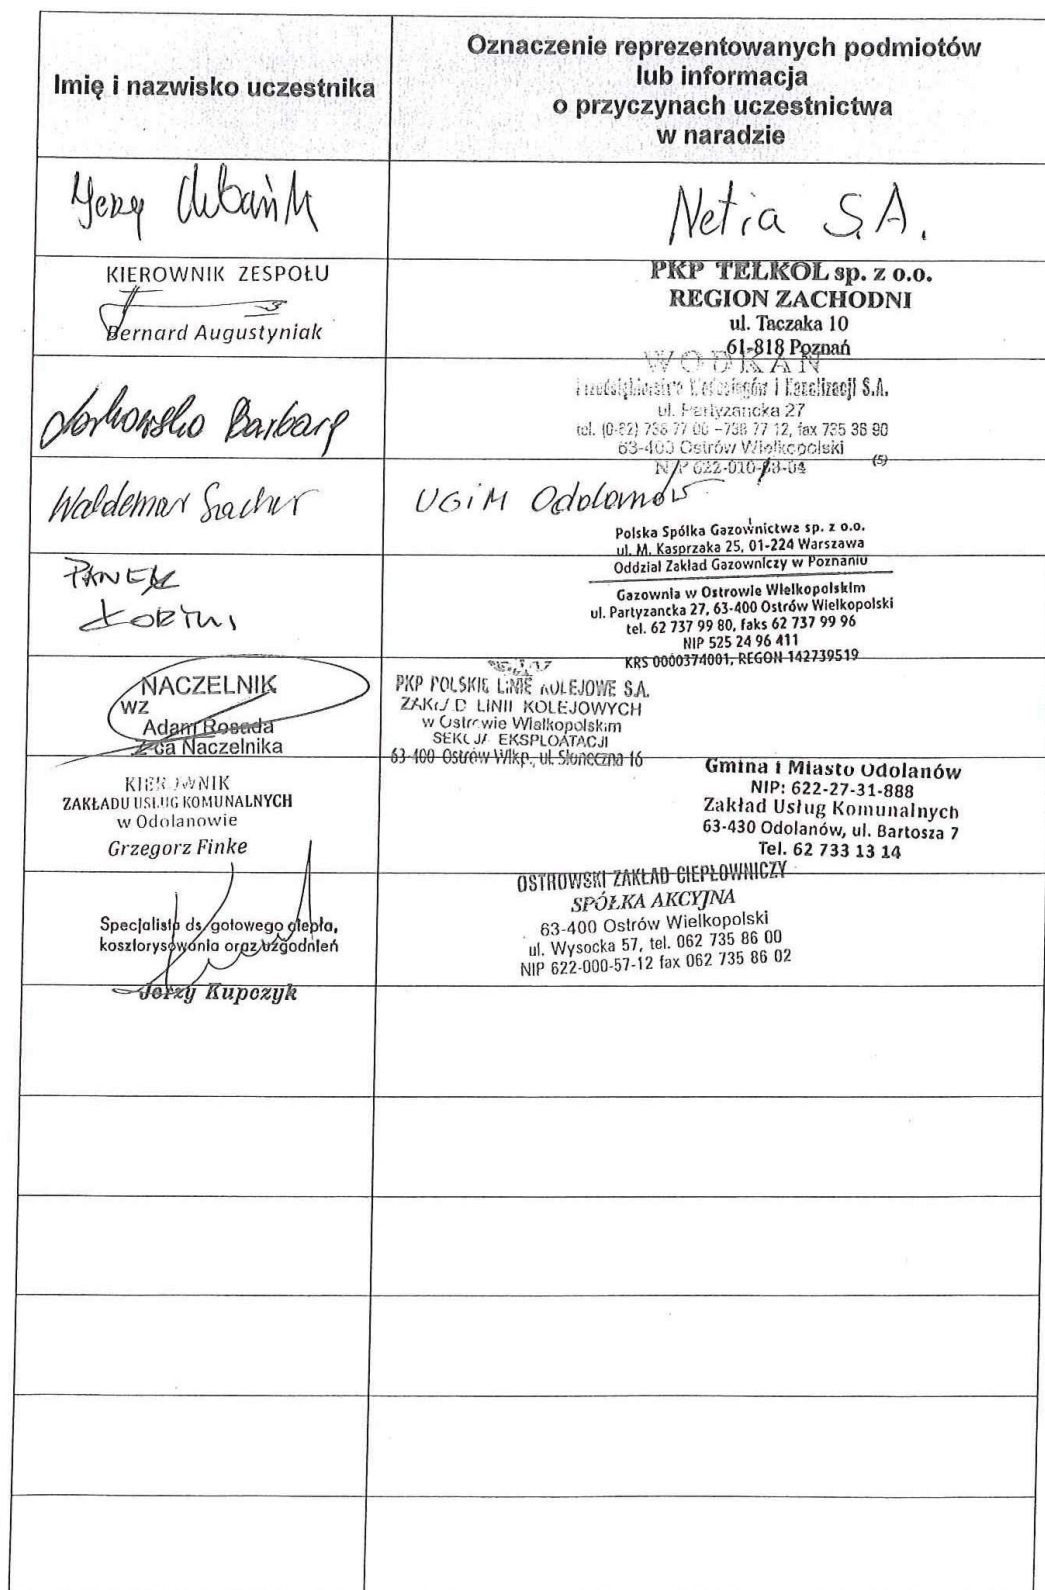 Imię i nazwisko uczestnika
Oznaczenie reprezentowanych podmiotów
lub informacja
o przyczynach uczestnictwa
w naradzie
Jerzy Urbanik
Netia S.A.
KIEROWNIK ZESPOŁU
Bernard Augustyniak
PKP TELKOL sp. z o.o.
REGION ZACHODNI
ul. Taczaka 10
61-818 Poznań
Barbara
WODKAN
Przedsiębiorstwo Wodociągów i Kanalizacji S.A.
ul. Partyzancka 27
tel. (0-62) 738 77 00 – 738 77 12, fax 735 38 90
63-400 Ostrów Wielkopolski
NIP 622-010-13-04 (5)
Waldemar
UGiM Odolanów
Polska Spółka Gazownictwa sp. z o.o.
ul. M. Kasprzaka 25, 01-224 Warszawa
Oddział Zakład Gazowniczy w Poznaniu
Gazownia w Ostrowie Wielkopolskim
ul. Partyzancka 27, 63-400 Ostrów Wielkopolski
tel. 62 737 99 80, faks 62 737 99 96
NIP 525 24 96 411
KRS 0000374001, REGON 142739519
NACZELNIK
WZ
Adam Rosada
Z-ca Naczelnika
PKP POLSKIE LINIE KOLEJOWE S.A.
ZAKŁAD LINII KOLEJOWYCH
w Ostrowie Wielkopolskim
SEKCJA EKSPLOATACJI
63-400 Ostrów Wlkp., ul. Słoneczna 16
KIEROWNIK
ZAKŁADU USŁUG KOMUNALNYCH
w Odolanowie
Grzegorz Finke
Gmina i Miasto Odolanów
NIP: 622-27-31-888
Zakład Usług Komunalnych
63-430 Odolanów, ul. Bartosza 7
Tel. 62 733 13 14
Specjalista ds. gotowego ciepła,
kosztorysowania oraz uzgodnień
Jerzy Kupczyk
OSTROWSKI ZAKŁAD CIEPŁOWNICZY
SPÓŁKA AKCYJNA
63-400 Ostrów Wielkopolski
ul. Wysocka 57, tel. 062 735 86 00
NIP 622-000-57-12 fax 062 735 86 02